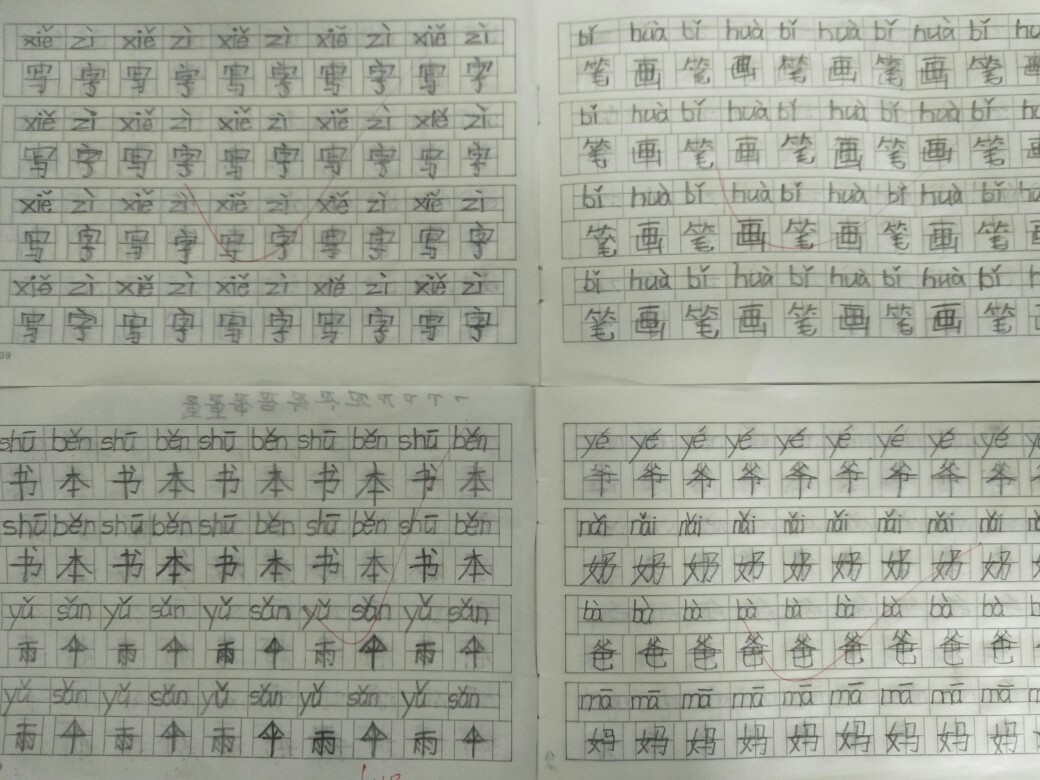 xiě zì xiě zì xiě zì xiě zì xiě zì
写字写字写字写字写字
xiě zì xiě zì xiě zì xiě zì xiě zì
写字写字写字写字写字
xiě zì xiě zì xiě zì xiě zì xiě zì
写字写字写字写字写字
xiě zì xiě zì xiě zì xiě zì xiě zì
写字写字写字写字写字
bǐ huà bǐ huà bǐ huà bǐ huà bǐ
笔画笔画笔画笔画笔画
bǐ huà bǐ huà bǐ huà bǐ huà bǐ
笔画笔画笔画笔画笔画
bǐ huà bǐ huà bǐ huà bǐ huà bǐ
笔画笔画笔画笔画笔画
bǐ huà bǐ huà bǐ huà bǐ huà bǐ
笔画笔画笔画笔画笔
shū běn shū běn shū běn shū běn shū běn
书本书本书本书本书本
shū běn shū běn shū běn shū běn shū běn
书本书本书本书本书本
yǔ sǎn yǔ sǎn yǔ sǎn yǔ sǎn yǔ sǎn
雨伞雨伞雨伞雨伞雨伞
yǔ sǎn yǔ sǎn yǔ sǎn yǔ sǎn yǔ sǎn
雨伞雨伞雨伞雨伞雨伞
yé yé yé yé yé yé yé yé yé yé
爷爷爷爷爷爷爷爷爷爷
nǎi nǎi nǎi nǎi nǎi nǎi nǎi nǎi nǎi
奶奶奶奶奶奶奶奶奶奶
bà bà bà bà bà bà bà bà bà
爸爸爸爸爸爸爸爸爸爸
mā mā mā mā mā mā mā mā mā mā
妈妈妈妈妈妈妈妈妈妈